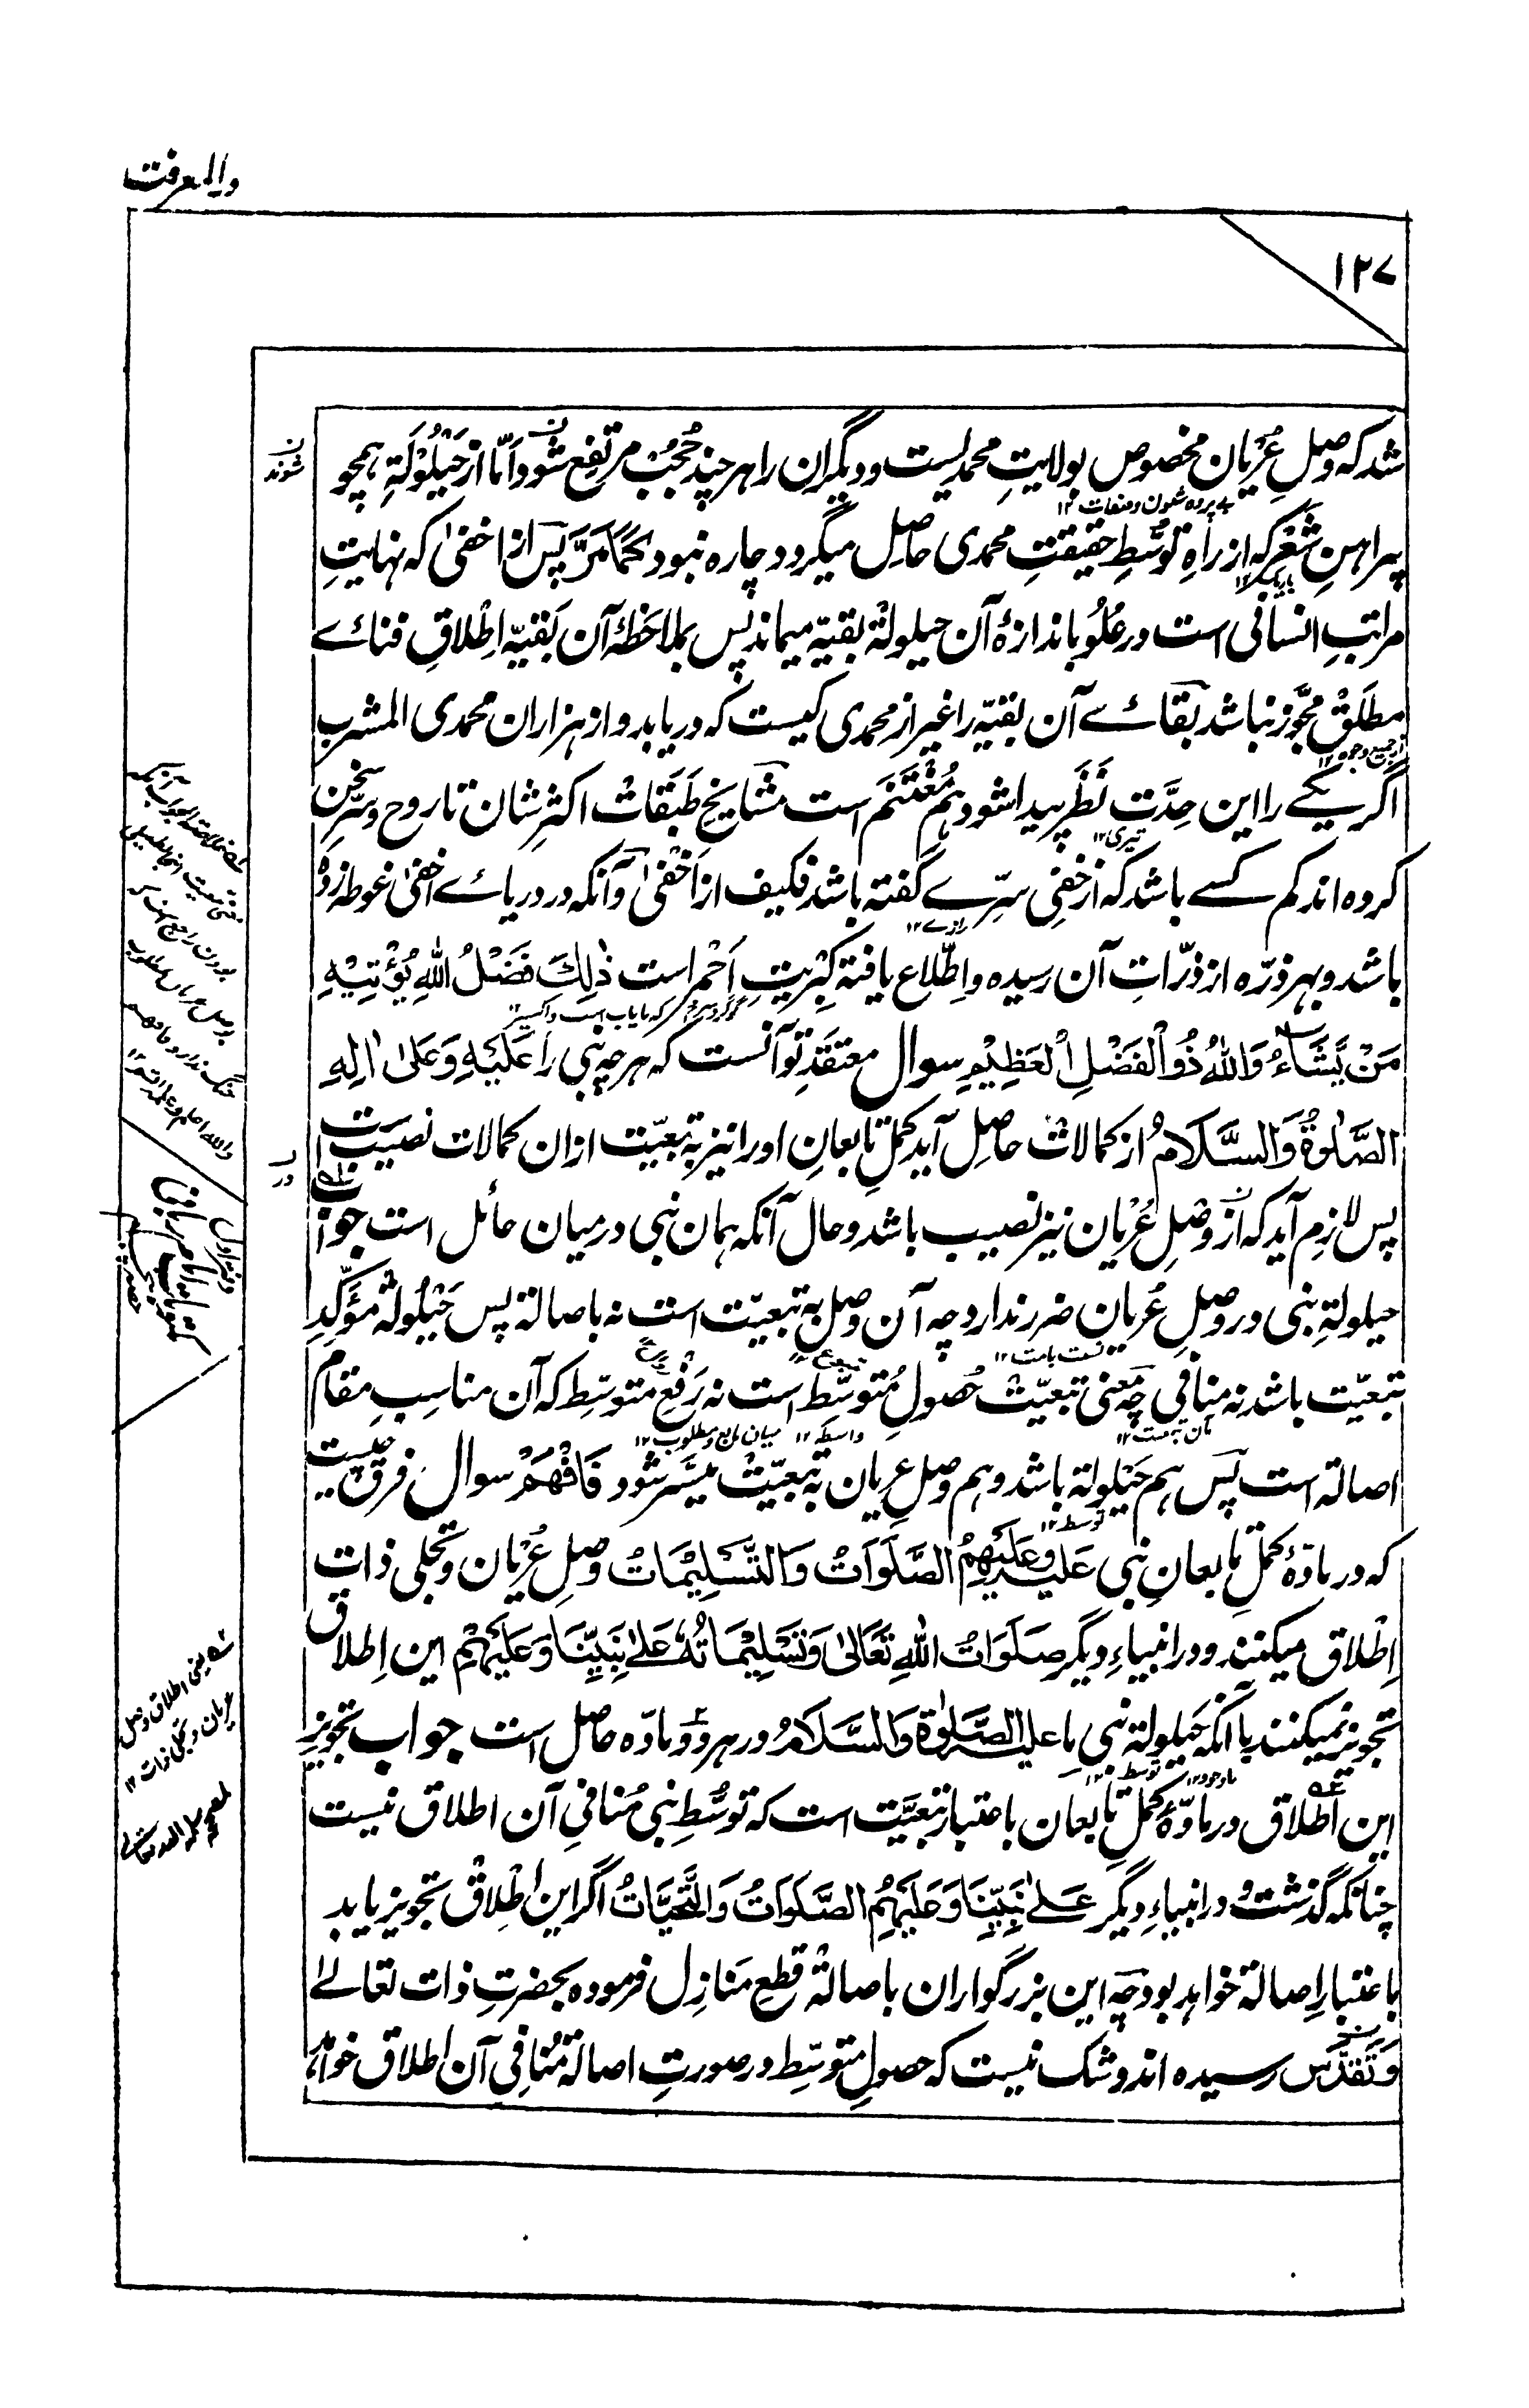 والمعرفت
۱۲۷
شد که وصلِ عُریان مخصوص بولایتِ محمدیست و دیگران را هر چند حُجُبْ مرتفِع شود اَمّا از حَیْلُوْلَةِ ہمچو
شوند
بے پرده شئون و صفات ۱۲
پیراہنِ شَعْر که از راهِ توسُّطِ حقیقتِ محمدی حاصِل میگردد چاره نبود کَمَا مَرَّ پس از اخفیٰ که نہایتِ
مراتبِ انسانی است در عُلُو باندازۂ آن حیلولة بقیّه میماند پس بملاحَظۂ آن بَقیّه اِطْلاقِ فنائے
مطلَقْ مجَوَّز نباشد بقائے آن بقیّه را غیر از محمدی کیست که دریابد و از ہزاران محمدی المشرب
از جمیع وجوه ۱۲
اگر یکے را این حِدَّت نَظَر پیدا شود ہم مُغْتَنَم است مشایخِ طَبَقاتْ اکثر شان تا روح و سِرّ سخن
تیزی ۱۲
کرده اند کم کسے باشد که از خفِی سِرّے گفته باشد فکیف از اَخْفیٰ و آنکه در دریائے اخفیٰ غوطه زده
رازے ۱۲
باشد و بہر ذرّه از ذرّاتِ آن رسیده و اِطّلاع یافته کِبْرِیتِ اَحْمر است ذٰلِكَ فَضْلُ اللهِ يُؤْتِيْهِ
گوگرد سرخ که نایاب است و اکسیر
مَنْ يَّشَاءُ وَاللهُ ذُو الْفَضْلِ الْعَظِيْمِ سوال معتقَدِ تو آنست که ہر چه نبی را عَلَيْهِ وَعَلىٰ اٰلِهِ
الصَّلوٰةُ وَالسَّلَامُ از کمالاتْ حاصِل آید کُمَّلِ تابعانِ او را نیز بہ تبعیّت ازان کمالات نصیبست
پس لازم آید که از وصْلِ عُرْیان نیز نصیب باشد و حال آنکه ہمان نبی درمیان حائل است جواب
حیلولةِ نبی در وصلِ عُریان ضرر ندارد چه آن وصل بہ تبعیّت است نه باصالة پس حَیْلُولَة مؤَکِّدِ
تبعیّت باشد نه منافی چه معنی تبعیّتْ حُصولِ مُتوسّط است نه رَفْعِ متوسّط که آن مناسِب مقامِ
واسطه ۱۲
میان تابع و مطلوب ۱۲
اصالة است پس ہم حَیْلولة باشد و ہم وصلِ عریان بہ تبعیّتْ میسَّر شود فَافْهَمْ سوال فرق چیست
توسط ۱۲
که در مادّۂ کُمَّلِ تابعانِ نبی عَلَيْهِ وَعَلَيْهِمُ الصَّلَوَاتُ وَالتَّسْلِيْمَاتُ وصلِ عُرْیان و تجلی ذات
اِطْلاق میکنند و در انبیاءِ دیگر صَلَوَاتُ اللهِ تَعَالىٰ وَتَسْلِيْمَاتُهٗ عَلىٰ نَبِيِّنَا وَعَلَيْهِمْ این اِطلاق
تجویز نمیکنند با آنکه حَیلولة نبیِ ما علیہ الصَّلوٰةُ وَالسَّلَامُ در ہر دو مادّه حاصل است جواب تجویز
باوجود ۱۲
توسط ۱۲
این اطلاق در مادّۂ کُمَّلِ تابعان باعتبارِ تبعیَّت است که توسُّطِ نبی مُنافیِ آن اطلاق نیست
چنانکه گذشت و در انبیاءِ دیگر عَلىٰ نَبِيِّنَا وَعَلَيْهِمُ الصَّلَوَاتُ وَالتَّحِيَّاتُ اگر این اِطْلاقْ تجویز یابد
باعتبارِ اِصالة خواہد بود چه این بزرگواران باصالة قطعِ مَنازِل فرموده بحضرتِ ذات تعالیٰ
وَتَقَدَّس رسیده اند و شک نیست که حصولِ متوسِّط در صورتِ اصالة مُنافیِ آن اطلاق خواہد
والله اعلم
دفتر اول
مکتوبات امام ربانی
یعنی اطلاق وصل
عریان و تجلی ذات ۱۲
لمصححه سلمه الله تعالی